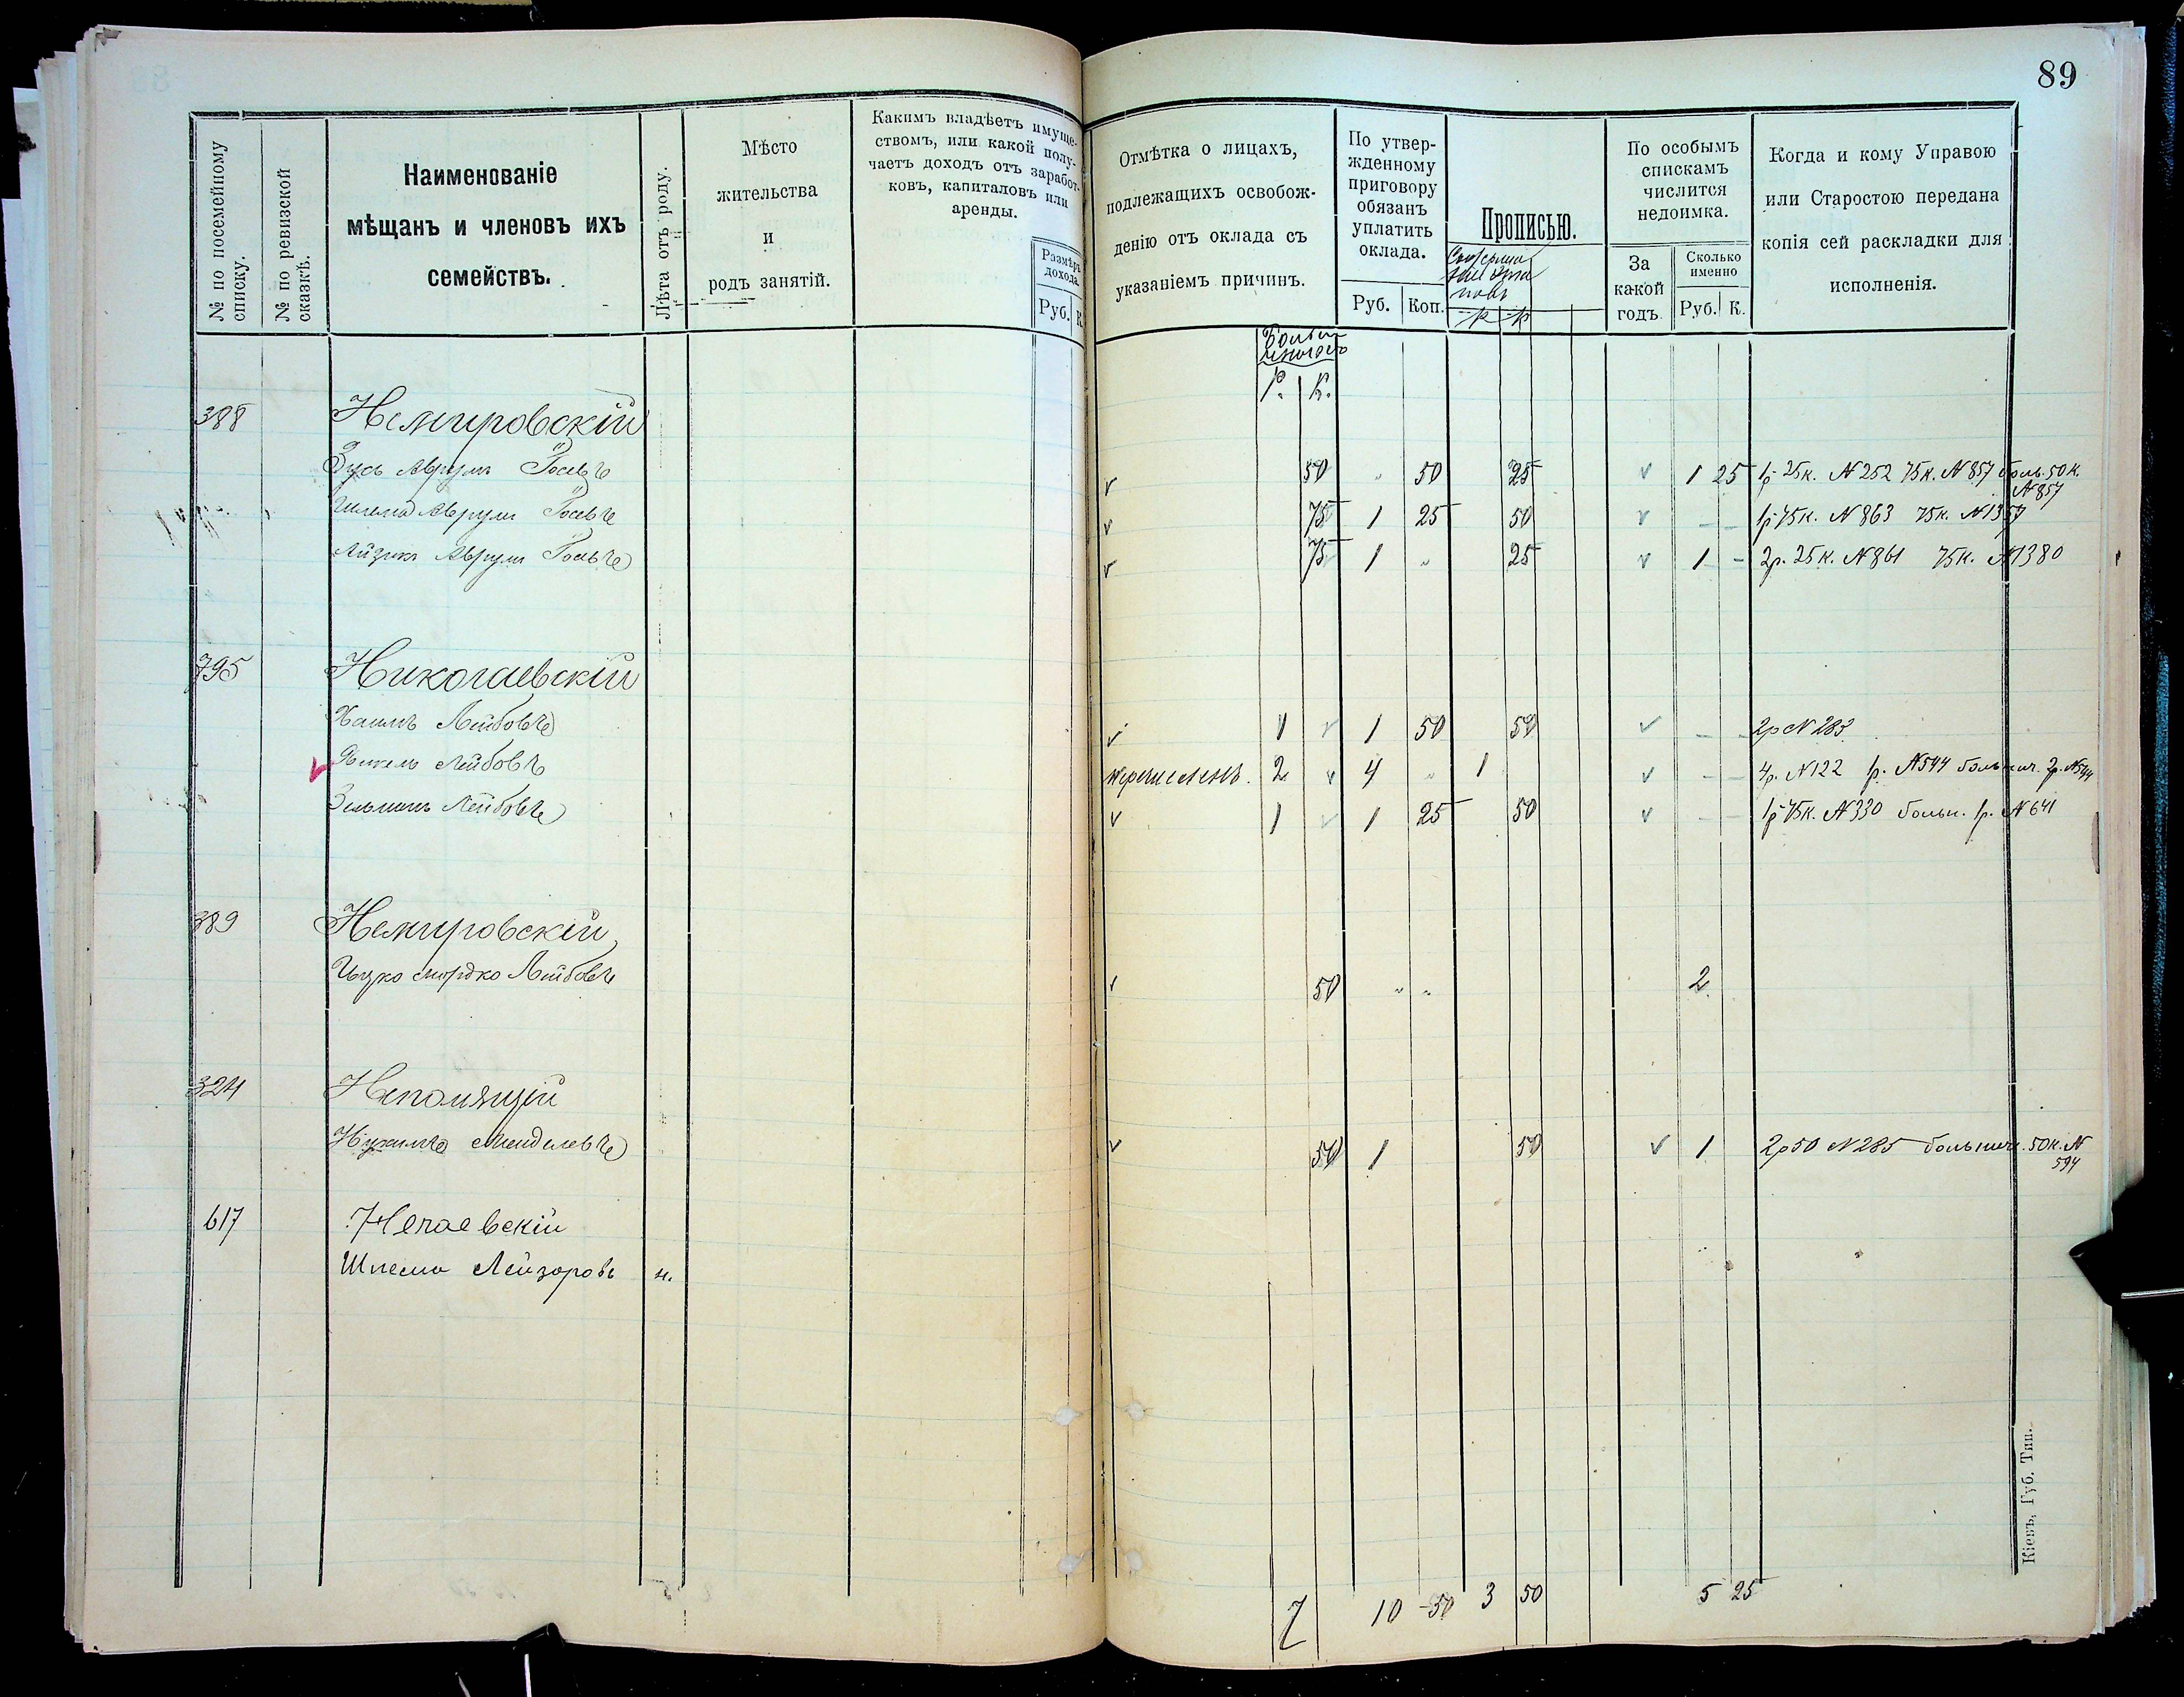 89
№ по посемейному
списку.
№ по ревизской
сказкѣ.
Наименованіе
мѣщанъ и членовъ ихъ
семействъ.
Лѣта отъ роду.
Мѣсто
жительства
и
родъ занятій.
Какимъ владѣетъ имуще-
ствомъ, или какой полу-
чаетъ доходъ отъ заработ-
ковъ, капиталовъ или
аренды.
Размѣръ
дохода.
Руб. К.
Отмѣтка о лицахъ,
подлежащихъ освобож-
денію отъ оклада съ
указаніемъ причинъ.
По утвер-
жденному
приговору
обязанъ
уплатить
оклада.
Руб. Коп.
Прописью.
р к
По особымъ
спискамъ
числится
недоимка.
За
какой
годъ.
Сколько
именно
Руб. К.
Когда и кому Управою
или Старостою передана
копія сей раскладки для
исполненія.
Р. К.
388 Немировскій
Зусь Аврум Іосевъ 50 „ 50 25 1 25 1р 25к. N 252 75к. N 857 боль. 50к.
N 857
Шлема Аврум Іосевъ 75 1 25 50 — — 1р 75к. N 863 75к. N 1357
Айзик Аврум Іосевъ 75 1 „ 25 1 — 2р. 25к. N 861 75к. N 1380
795 Николаевскій
Хаимъ Лейбовъ 1 1 50 50 — — 2р N 283
Лейбовъ перечисленъ. 2 4 „ 1 — — 4р. N 122 1р. N 544 больнич. 2р. N 544
Зельманъ Лейбовъ 1 1 25 50 — — 1р 75к. N 330 больн. 1р. N 641
389 Немировскій
Ицко Мордко Лейбовъ 50 „ „ 2
324 Непомящій
Нухимъ Менделевъ 50 1 50 1 2р 50 N 285 больнич. 50к. N
594
617 Нечаевскій
Шлема Лейзоровъ н.
7 10 - 50 3 50 5 25
Кіевъ, Губ. Тип.